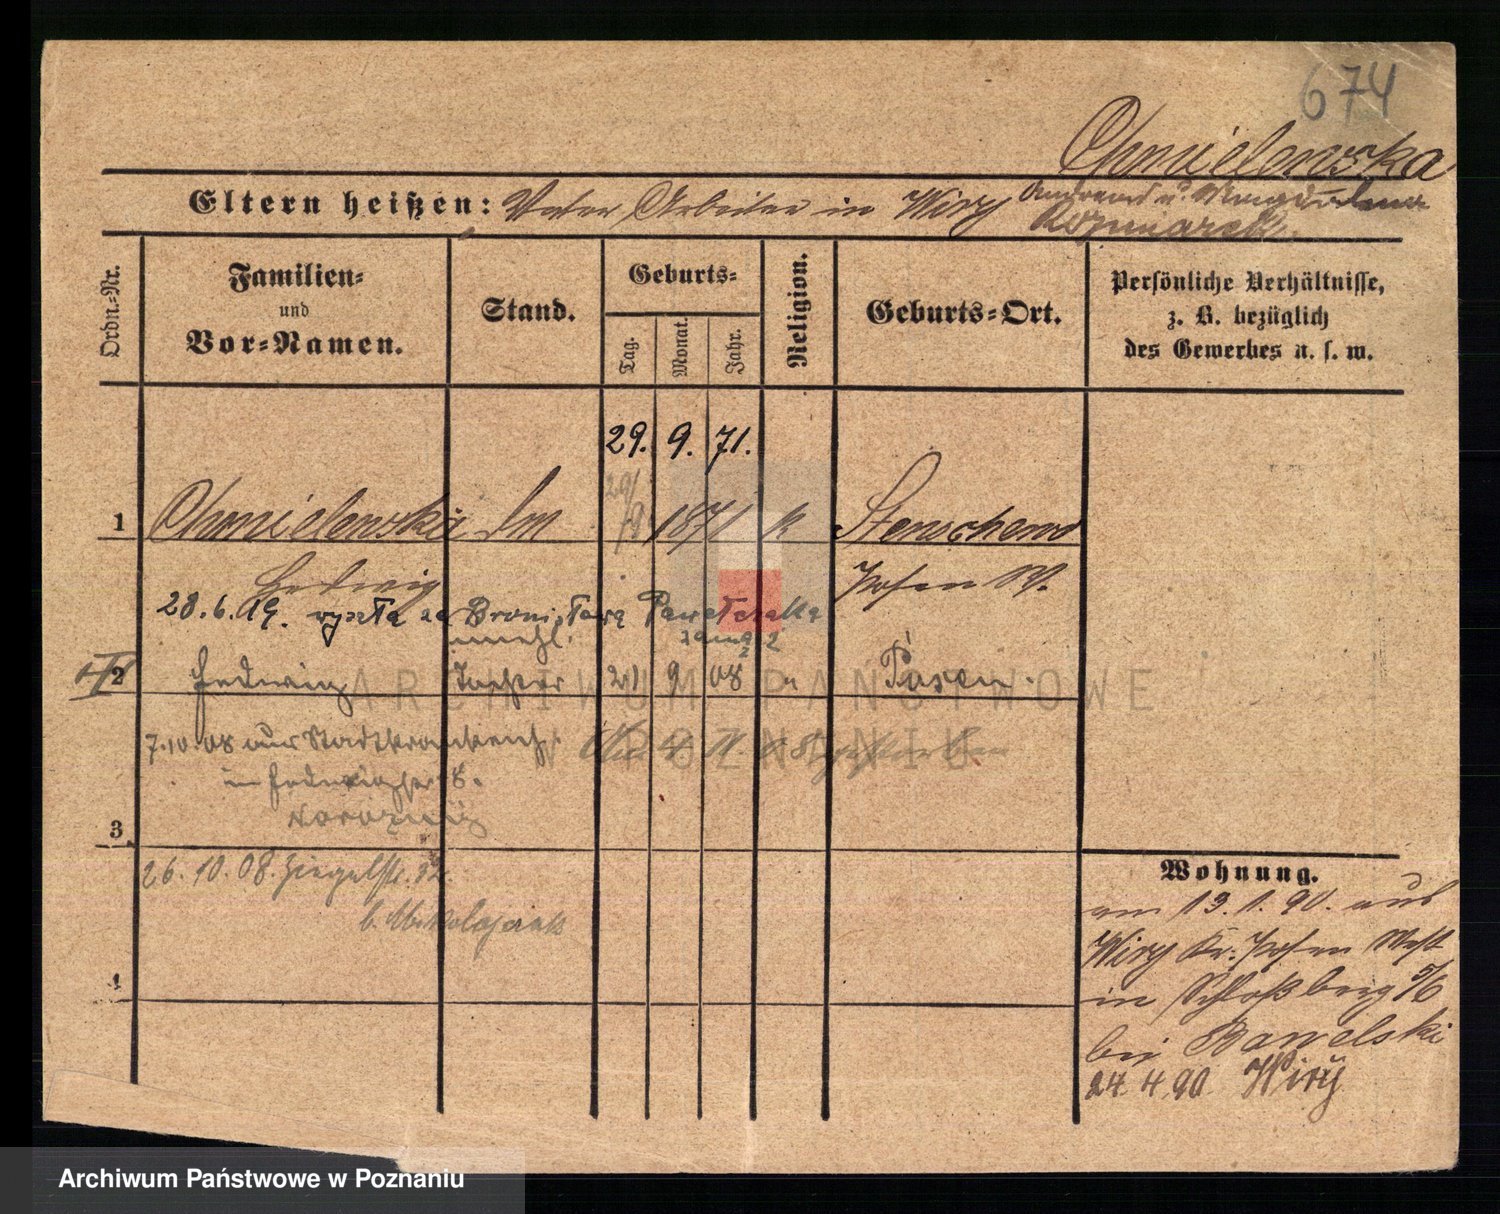 674
Chmielewska
Eltern heißen: Vater Arbeiter in Wiry Andreas u. Magdalena
Kozmiarek
Ordn.-Nr.
Familien-
und
Vor-Namen.
Stand.
Geburts-
Tag.
Monat.
Jahr.
Religion.
Geburts-Ort.
Persönliche Verhältnisse,
z. B. bezüglich
des Gewerbes u. s. w.
29. 9. 71.
1 Chmielewska 1871 k Stenschewo
Hedwig Posen W.
28.6.19. wyszła za Bronisława
unehl.
2 Hedwig Tochter 21 9 08 Posen.
7.10.08 aus Stadtkrankenh.
in
3
26.10.08. Ziegelstr. 32.
b. Mikolajczak
4
Wohnung.
am 13.1.90. aus
Wiry Kr. Posen West
in Schloßberg 5/6
bei Pawelski
24.4.90. Wiry
ARCHIWUM PAŃSTWOWE
W POZNANIU
Archiwum Państwowe w Poznaniu